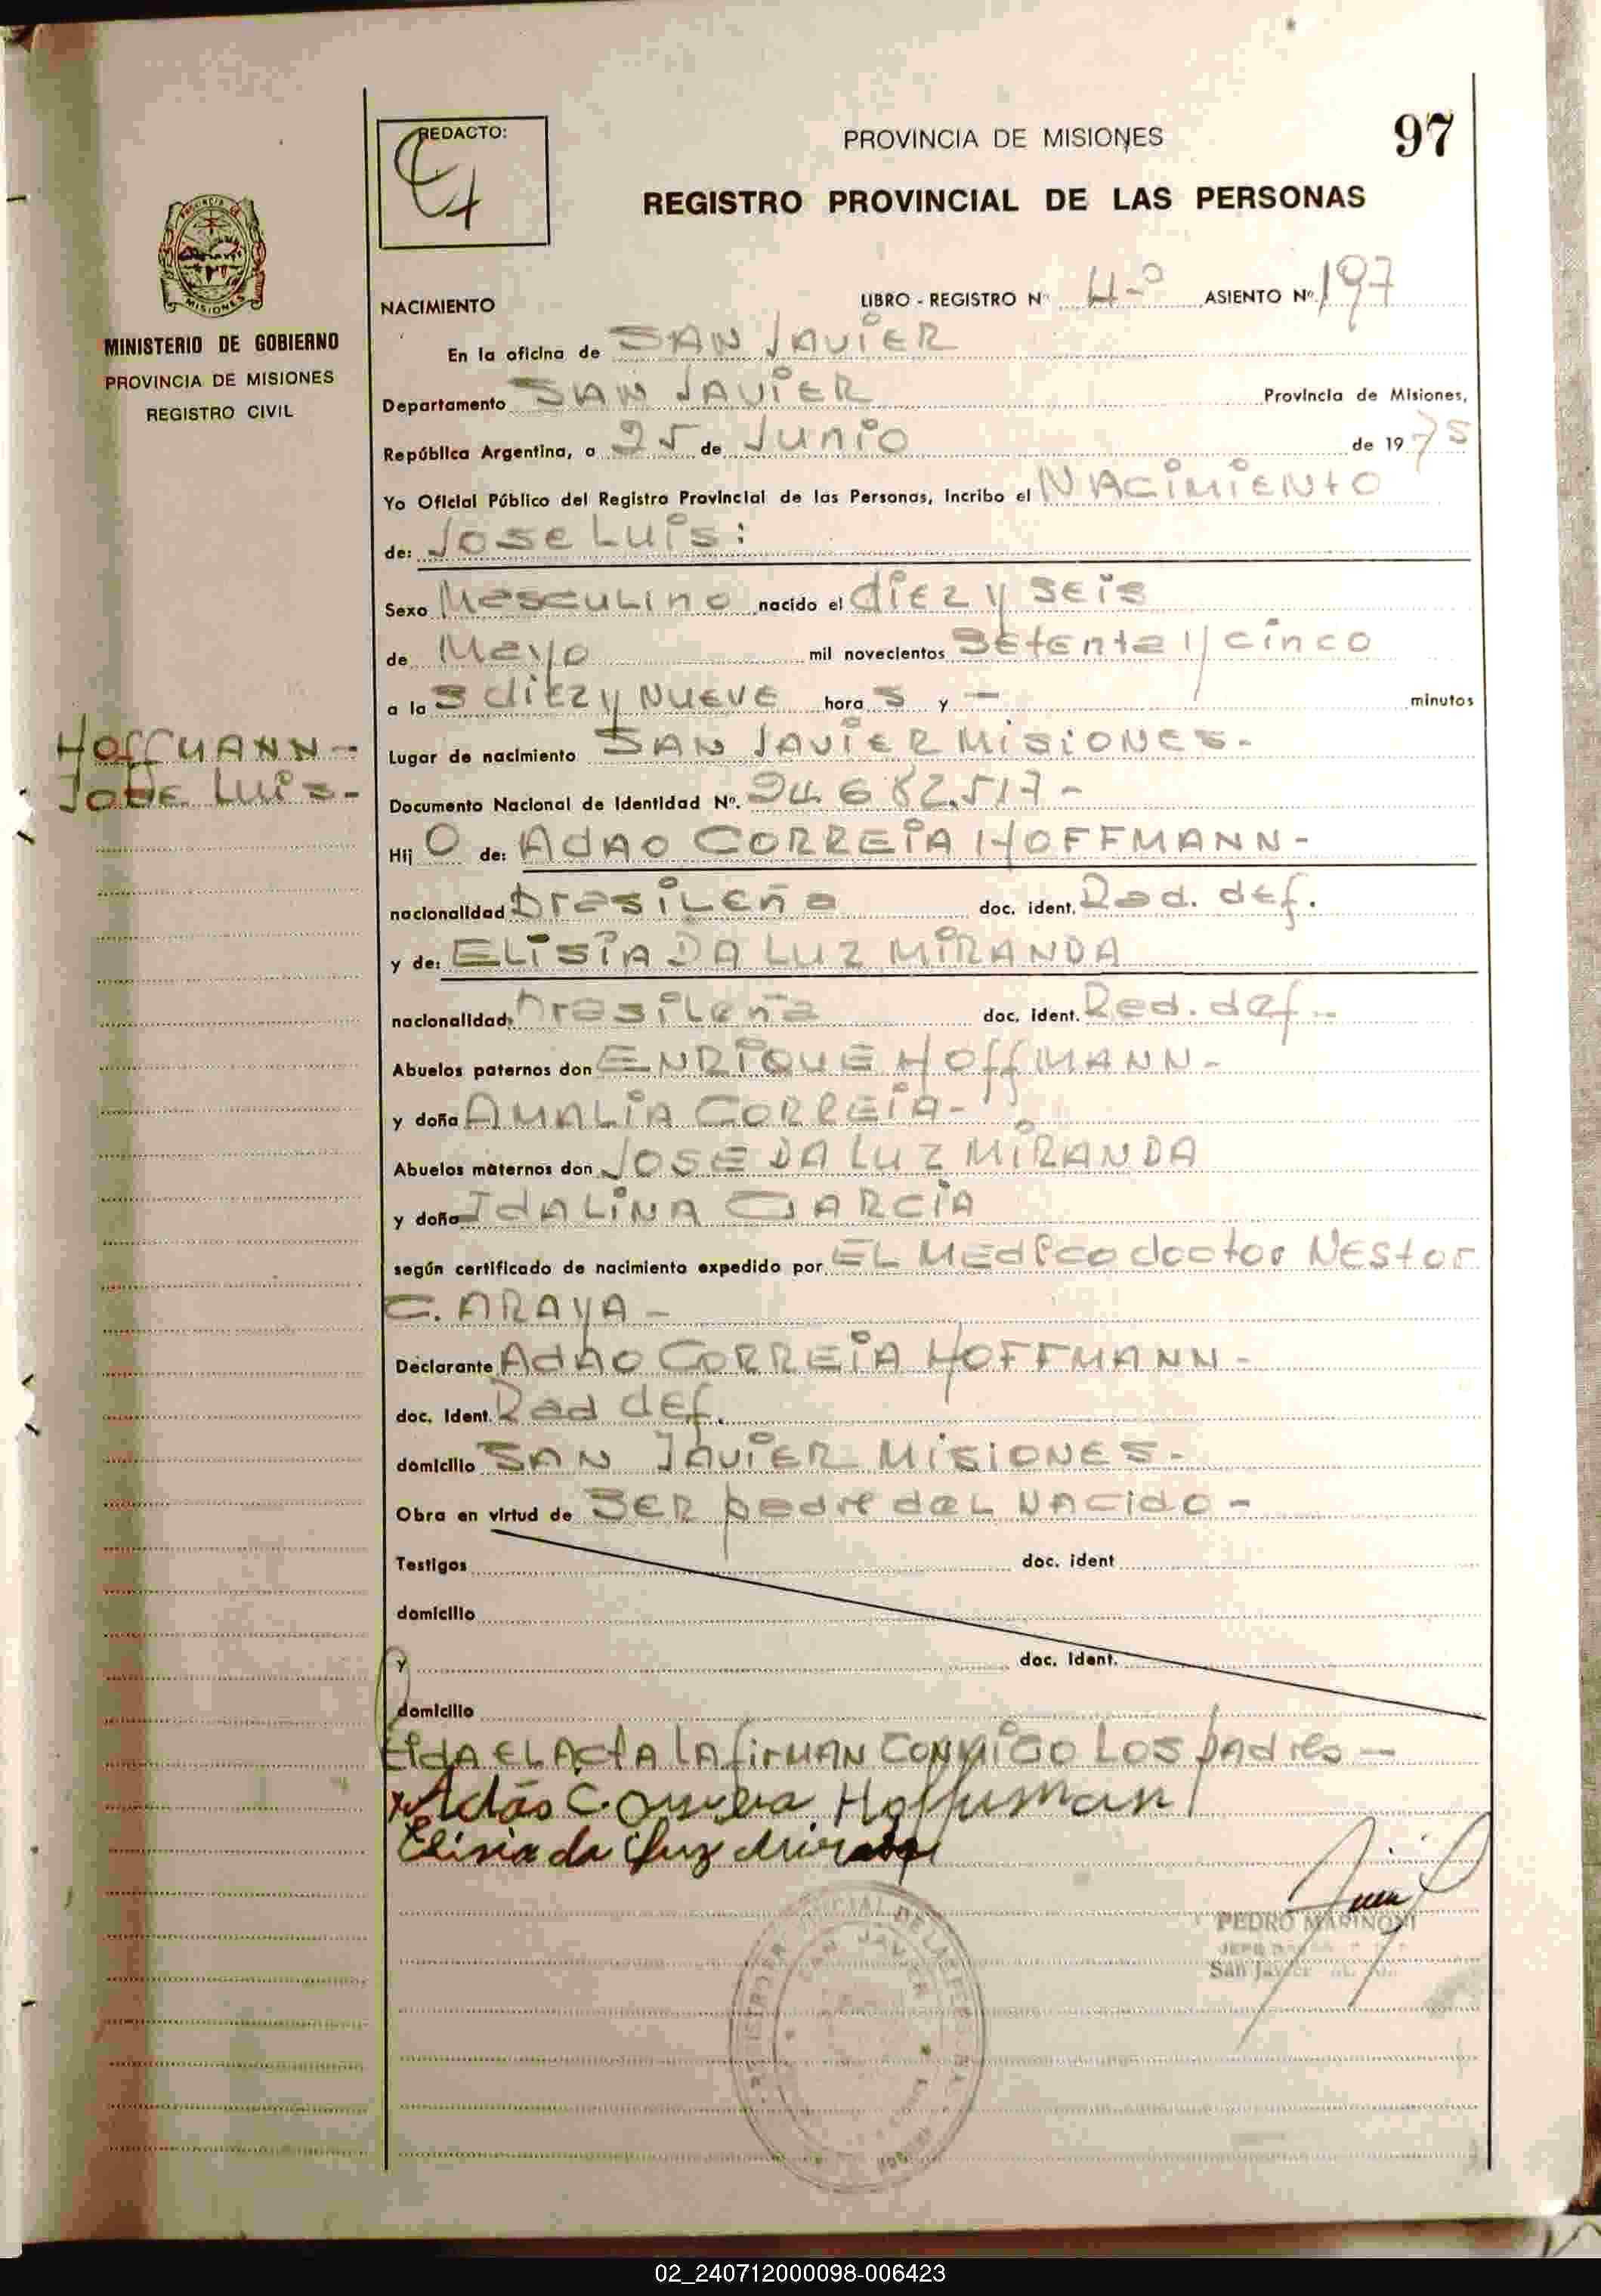 97
REDACTO:
PROVINCIA DE MISIONES
REGISTRO PROVINCIAL DE LAS PERSONAS
MISIONES
MINISTERIO DE GOBIERNO
PROVINCIA DE MISIONES
REGISTRO CIVIL
NACIMIENTO LIBRO - REGISTRO Nº 4-º ASIENTO Nº 197
En la oficina de SAN JAViER
Departamento SAN JAViER Provincia de Misiones,
República Argentina, a 25 de Junio de 1975
Yo Oficial Público del Registro Provincial de las Personas, Incribo el NACiMiENtO
de: Jose Luis:
Sexo Masculino nacido el diez y seis
de Mayo mil novecientos setenta y cinco
a la s diez y NUEVE hora s y — minutos
HoffMANN-
Jose Luis-
Lugar de nacimiento SAN JAViER MiSiONES-
Documento Nacional de Identidad Nº. 24.682.517-
Hij O de: AdAO CORREiA HOFFMANN-
nacionalidad brasileña doc. ident. Rad. def.
y de: ELiSiA DA LUZ MiRANDA
nacionalidad brasileña doc. ident. Rad. def-
Abuelos paternos don ENRiQUE HOffMANN-
y doña AMALiA CORREiA-
Abuelos maternos don JOSE DA LUZ MiRANDA
y doña IdALiNA GARCiA
según certificado de nacimiento expedido por EL Medico doctor NEstor
C. ARAyA-
Declarante AdAO CORREiA HOFFMANN-
doc. Ident. Rad def.
domicilio SAN JAViER MiSiONES-
Obra en virtud de SER padre del NAcido-
Testigos doc. ident
domicilio
y doc. Ident.
domicilio
LEidA EL ActA lA firMAN CONMiGO LOS pAdres-
Adão Correia Hoffman
Elisia da Luz Miranda
PEDRO MARINONI
San Javier
02_240712000098-006423